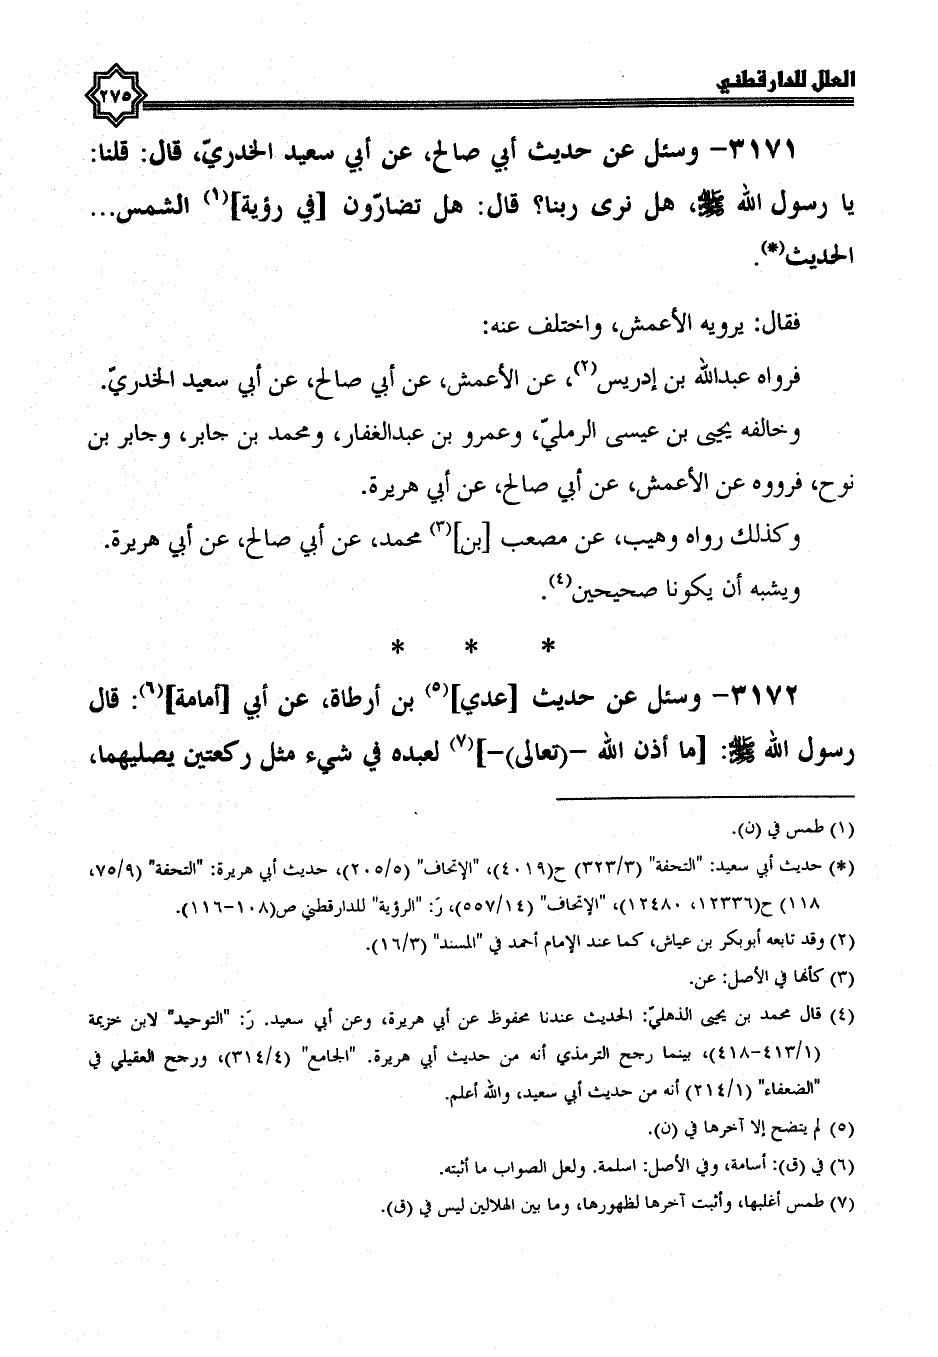 العلل للدارقطني
٢٧٥
٣١٧١- وسئل عن حديث أبي صالح، عن أبي سعيد الخدريّ، قال: قلنا:
يا رسول الله ﷺ، هل نرى ربنا؟ قال: هل تضارّون [في رؤية](١) الشمس...
الحديث(*).
فقال: يرويه الأعمش، واختلف عنه:
فرواه عبدالله بن إدريس(٢)، عن الأعمش، عن أبي صالح، عن أبي سعيد الخدريّ.
وخالفه يحيى بن عيسى الرمليّ، وعمرو بن عبدالغفار، ومحمد بن جابر، وجابر بن
نوح، فرووه عن الأعمش، عن أبي صالح، عن أبي هريرة.
وكذلك رواه وهيب، عن مصعب [بن](٣) محمد، عن أبي صالح، عن أبي هريرة.
ويشبه أن يكونا صحيحين(٤).
* * *
٣١٧٢- وسئل عن حديث [عدي](٥) بن أرطاة، عن أبي [أمامة](٦): قال
رسول الله ﷺ: [ما أذن الله -(تعالى)-](٧) لعبده في شيء مثل ركعتين يصليهما،
(١) طمس في (ن).
(*) حديث أبي سعيد: "التحفة" (٣٢٣/٣) ح(٤٠١٩)، "الإتحاف" (٢٠٥/٥)، حديث أبي هريرة: "التحفة" (٧٥/٩،
١١٨) ح(١٢٣٣٦، ١٢٤٨٠)، "الإتحاف" (٥٥٧/١٤)، رَ: "الرؤية" للدارقطني ص(١٠٨-١١٦).
(٢) وقد تابعه أبوبكر بن عياش، كما عند الإمام أحمد في "المسند" (١٦/٣).
(٣) كأنها في الأصل: عن.
(٤) قال محمد بن يحيى الذهليّ: الحديث عندنا محفوظ عن أبي هريرة، وعن أبي سعيد. رَ: "التوحيد" لابن خزيمة
(٤١٣/١-٤١٨)، بينما رجح الترمذي أنه من حديث أبي هريرة. "الجامع" (٣١٤/٤)، ورجح العقيلي في
"الضعفاء" (٢١٤/١) أنه من حديث أبي سعيد، والله أعلم.
(٥) لم يتضح إلا آخرها في (ن).
(٦) في (ق): أسامة، وفي الأصل: اسلمة. ولعل الصواب ما أثبته.
(٧) طمس أغلبها، وأثبت آخرها لظهورها، وما بين الهلالين ليس في (ق).